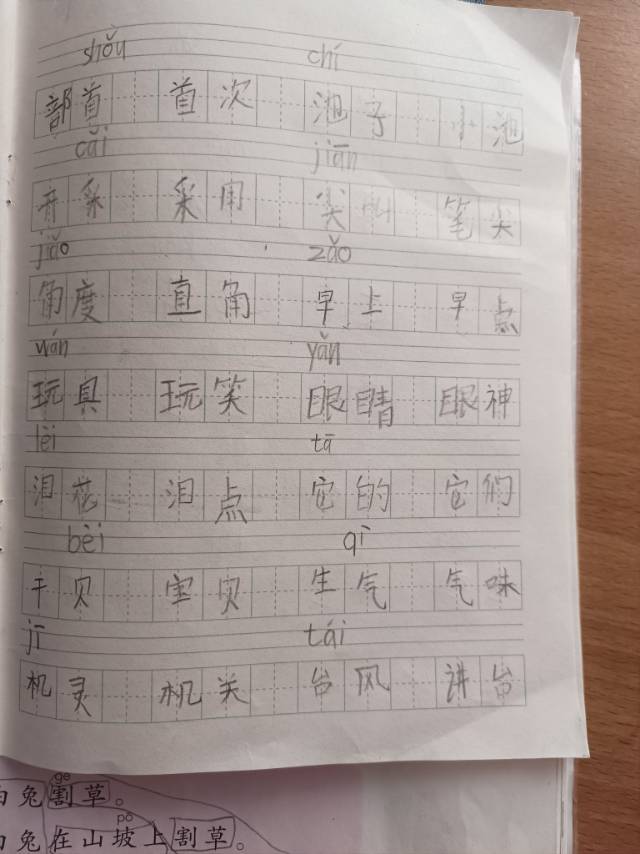 shǒu chí
部首 首次 池子 小池
cǎi jiān
开采 采用 尖叫 笔尖
jiǎo zǎo
角度 直角 早上 早点
wán yǎn
玩具 玩笑 眼睛 眼神
lèi tā
泪花 泪点 它的 它们
bèi qì
干贝 宝贝 生气 气味
jī tái
机灵 机关 台风 讲台
gē
白兔割草。
pō
白兔在山坡上割草。